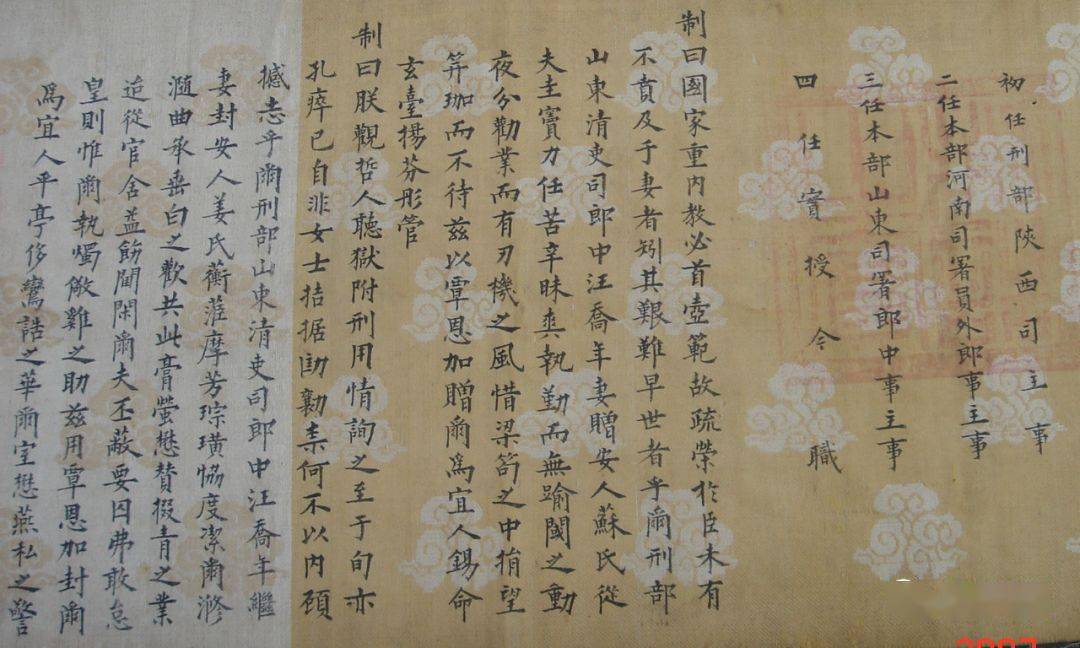 初任刑部陝西司主事
二任本部河南司署員外郎事主事
三任本部山東司署郎中事主事
四任實授今職
制曰國家重內教必首壼範故疏榮於臣未有
不賁及于妻者矧其艱難早世者乎爾刑部
山東清吏司郎中汪喬年妻贈安人蘇氏從
夫主竇力任苦辛昧爽執勤而無踰閾之動
夜分勸業而有刃機之風惜梁笱之中捐望
笄珈而不待茲以覃恩加贈爾為宜人錫命
玄臺揚芬彤管
制曰朕觀哲人聽獄附刑用情詢之至于旬亦
孔瘁已自非女士拮据劻勷柰何不以內顧
撼志乎爾刑部山東清吏司郎中汪喬年繼
妻封安人姜氏蘅蒞摩芳琮璜恊度潔爾滫
瀡曲承垂白之歡共此膏螢懋贊掇青之業
迨從官舍益飭閫閑爾夫丕蔽要囚弗敢怠
皇則惟爾執燭儆雞之助茲用覃恩加封爾
為宜人平亭侈鸞誥之華爾室懋燕私之警